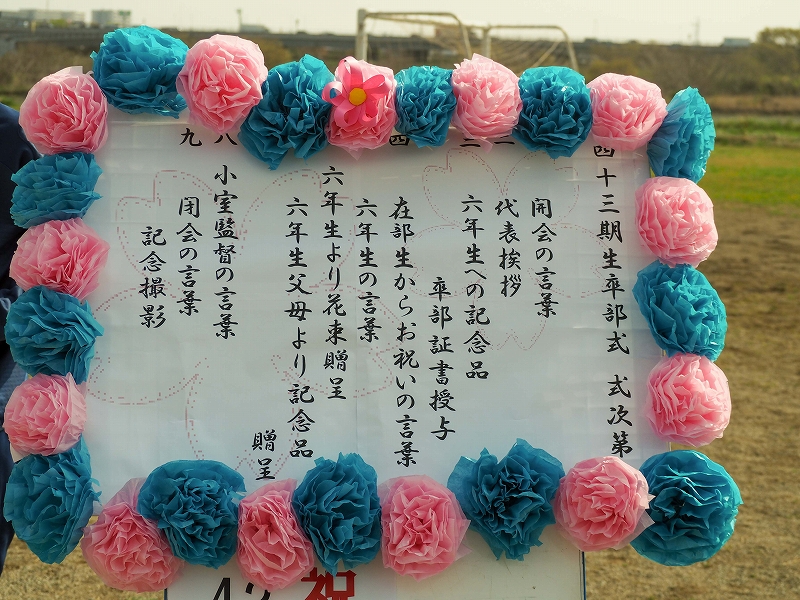 四十三期生卒部式 式次第
一 開会の言葉
二 代表挨拶
三 六年生への記念品
卒部証書授与
四 在部生からお祝いの言葉
六年生の言葉
六年生より花束贈呈
六年生父母より記念品
贈呈
八 小室監督の言葉
九 閉会の言葉
記念撮影
祝